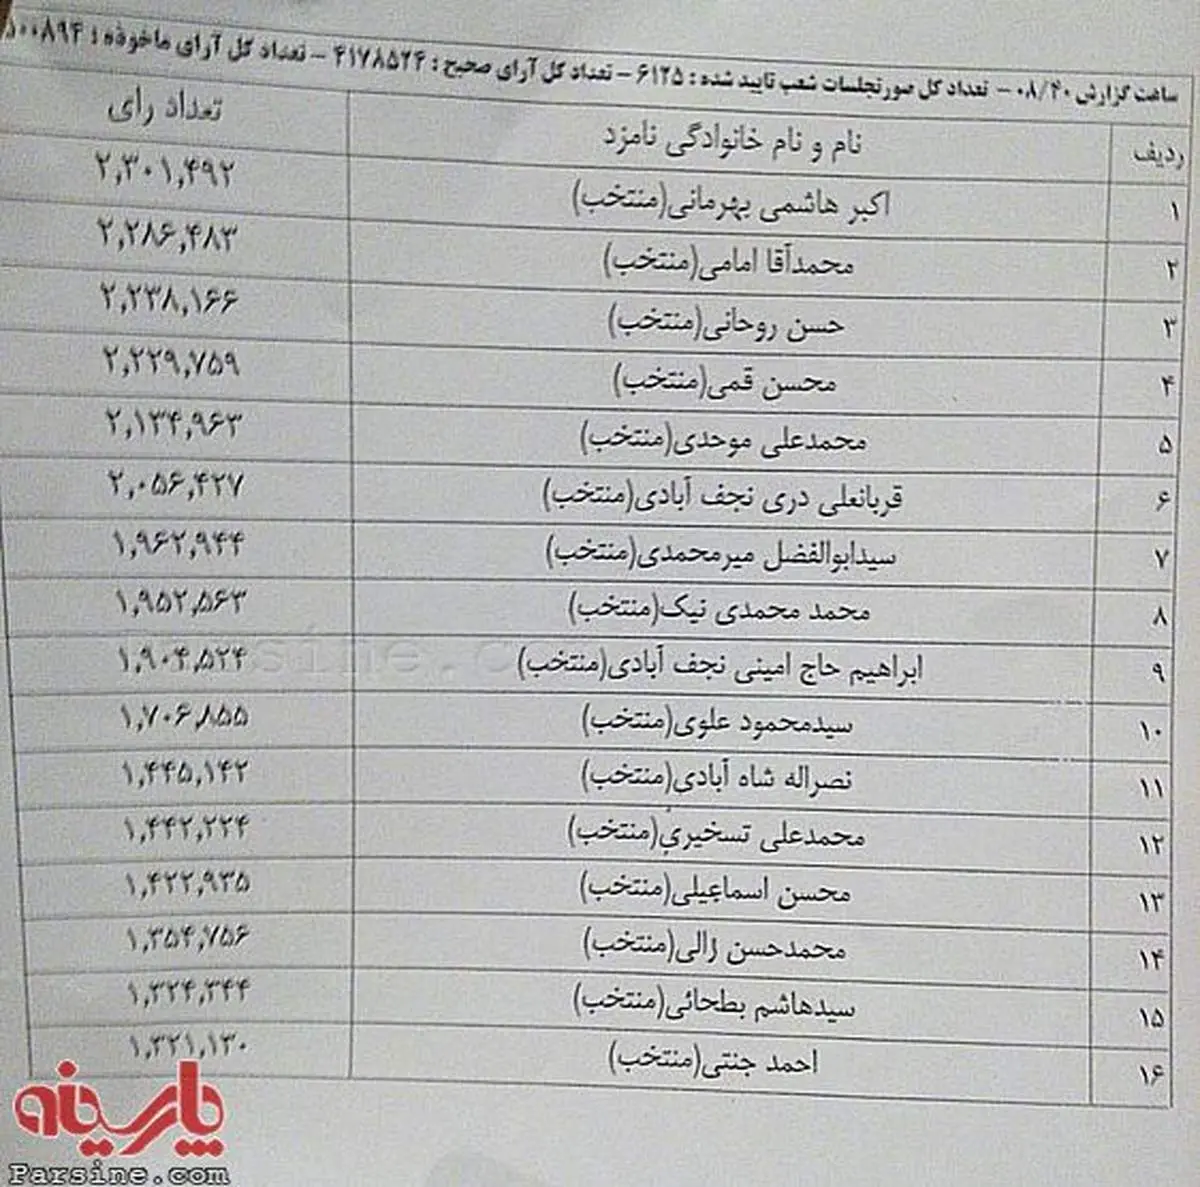 ساعت گزارش ۰۸/۴۰ - تعداد کل صورتجلسات شعب تایید شده : ۶۱۲۵ - تعداد کل آرای صحیح : ۴۱۷۸۵۲۴ - تعداد کل آرای ماخوذه :
ردیف نام و نام خانوادگی نامزد تعداد رای
۱ اکبر هاشمی بهرمانی(منتخب) ۲,۳۰۱,۴۹۲
۲ محمدآقا امامی(منتخب) ۲,۲۸۶,۴۸۳
۳ حسن روحانی(منتخب) ۲,۲۳۸,۱۶۶
۴ محسن قمی(منتخب) ۲,۲۲۹,۷۵۹
۵ محمدعلی موحدی(منتخب) ۲,۱۳۴,۹۶۳
۶ قربانعلی دری نجف آبادی(منتخب) ۲,۰۵۶,۴۲۷
۷ سیدابوالفضل میرمحمدی(منتخب) ۱,۹۶۲,۹۴۴
۸ محمد محمدی نیک(منتخب) ۱,۹۵۲,۵۶۳
۹ ابراهیم حاج امینی نجف آبادی(منتخب) ۱,۹۰۴,۵۲۴
۱۰ سیدمحمود علوی(منتخب) ۱,۷۰۶,۸۵۵
۱۱ نصراله شاه آبادی(منتخب) ۱,۴۴۵,۱۴۲
۱۲ محمدعلی تسخیری(منتخب) ۱,۴۴۲,۲۲۴
۱۳ محسن اسماعیلی(منتخب) ۱,۴۲۲,۹۳۵
۱۴ محمدحسن زالی(منتخب) ۱,۳۵۴,۷۵۶
۱۵ سیدهاشم بطحائی(منتخب) ۱,۳۲۴,۳۴۴
۱۶ احمد جنتی(منتخب) ۱,۳۲۱,۱۳۰
پارسینه
Parsine.com